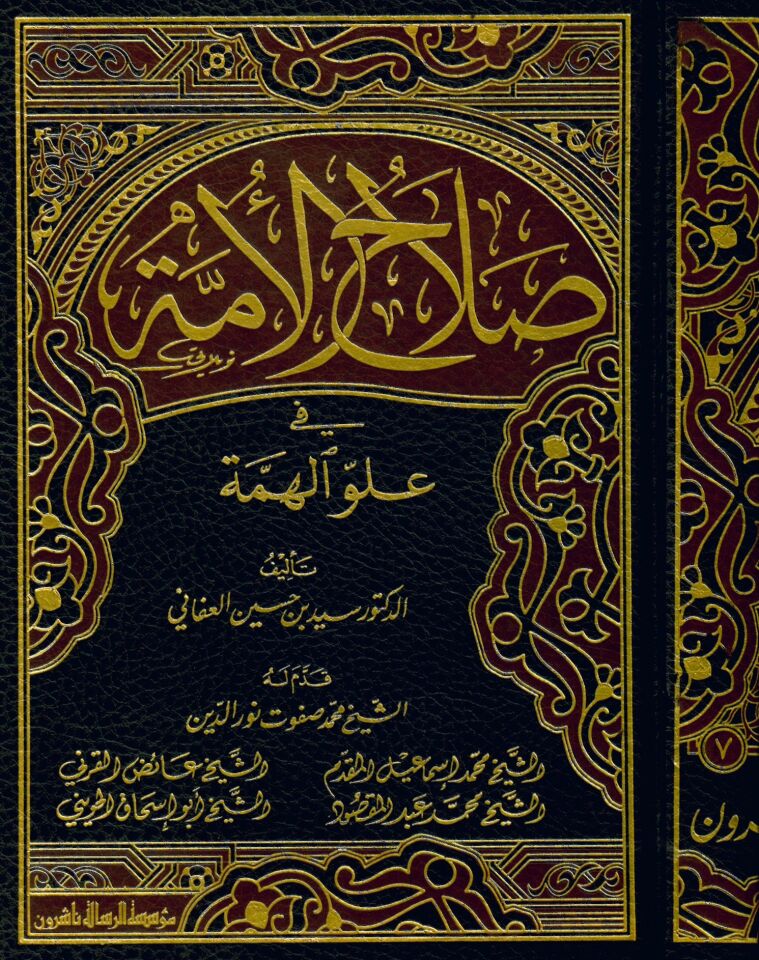 صَلَاحُ الأُمَّة
في
علوّ الهمَّة
تَأليفُ
الدكتور سيد بن حسين العفاني
قَدَّمَ لَهُ
الشيخ محمد صفوت نور الدين
الشَّيخ محمّد إسماعيل المقدّم الشَّيخ عَائض القرني
الشَّيخ محمَّد عبد المقصُود الشَّيخ أبو إسحاق الحويني
مؤسسة الرسالة ناشرون
٧